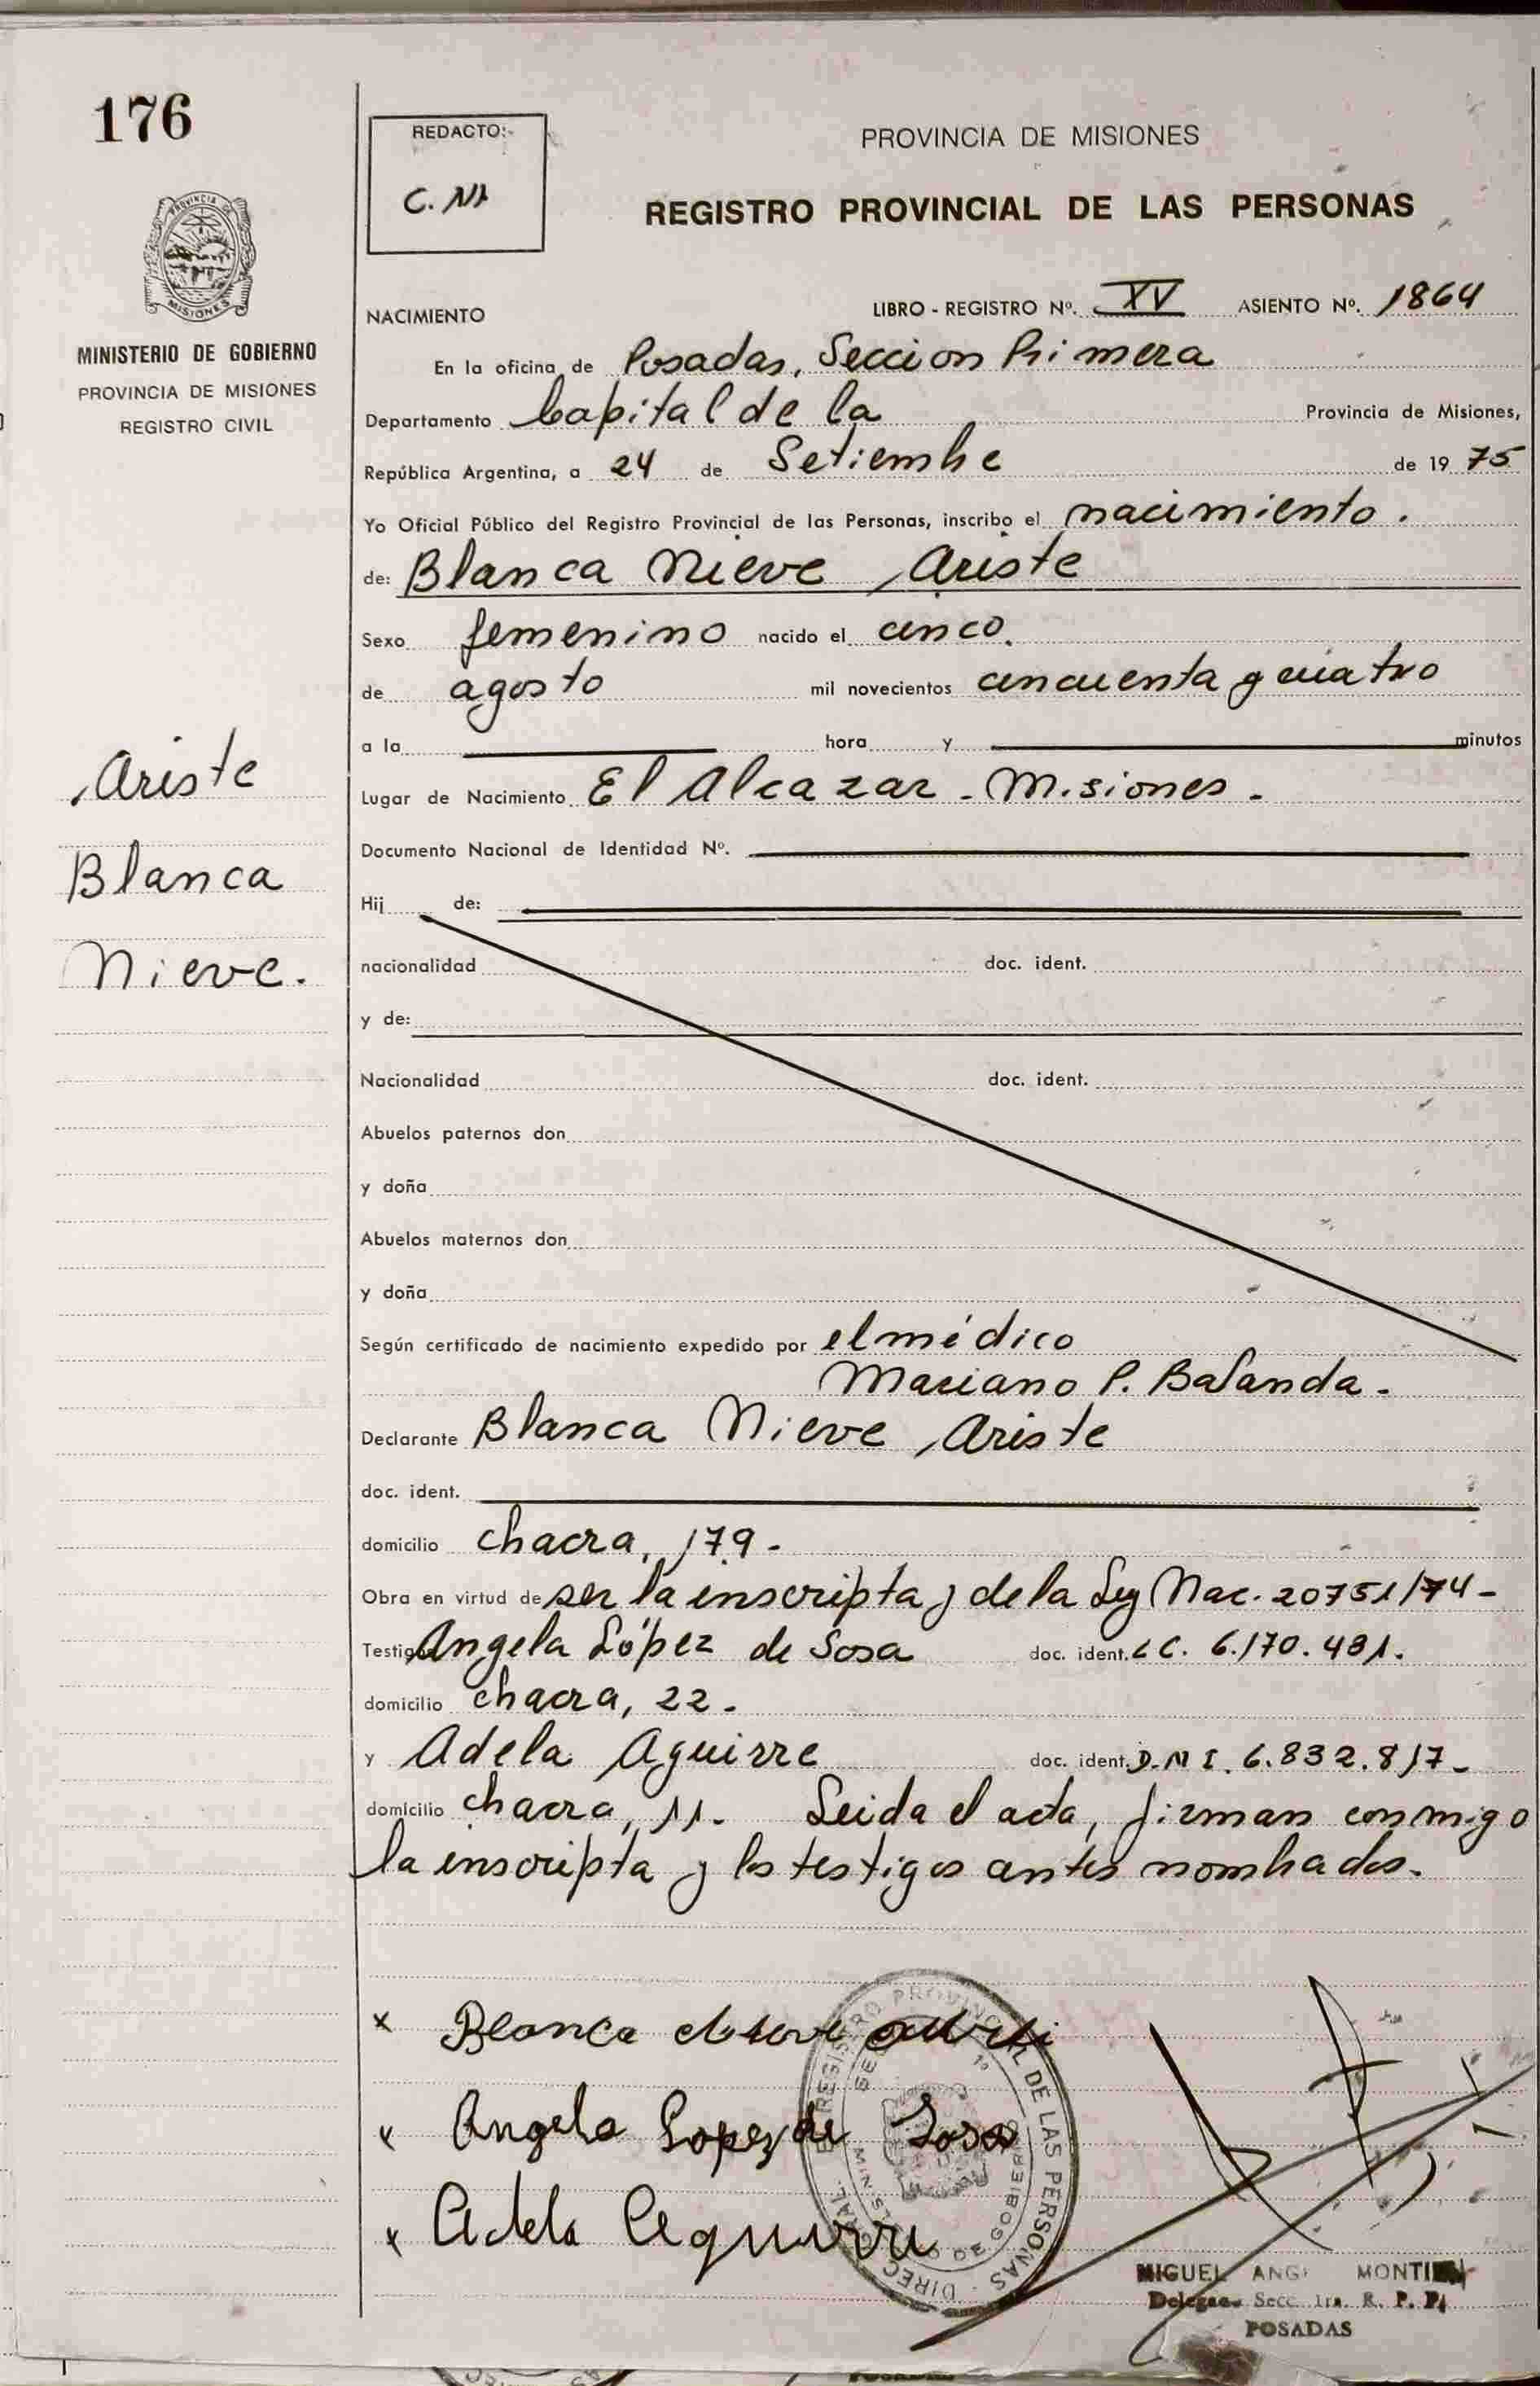 176
REDACTO:-
PROVINCIA DE MISIONES
REGISTRO PROVINCIAL DE LAS PERSONAS
MINISTERIO DE GOBIERNO
PROVINCIA DE MISIONES
REGISTRO CIVIL
NACIMIENTO LIBRO - REGISTRO Nº. XV ASIENTO Nº. 1864
En la oficina de Posadas, Seccion Primera
Departamento Capital de la Provincia de Misiones,
República Argentina, a 24 de Setiembre de 19 75
Yo Oficial Público del Registro Provincial de las Personas, inscribo el nacimiento.
de: Blanca Nieve Ariste
Sexo femenino nacido el cinco.
de agosto mil novecientos cincuenta y cuatro
a la hora y minutos
Ariste
Blanca
Nieve.
Lugar de Nacimiento El Alcazar - Misiones -
Documento Nacional de Identidad Nº.
Hij de:
nacionalidad doc. ident.
y de:
Nacionalidad doc. ident.
Abuelos paternos don
y doña
Abuelos maternos don
y doña
Según certificado de nacimiento expedido por el médico
Mariano P. Balanda -
Declarante Blanca Nieve Ariste
doc. ident.
domicilio chacra, 179 -
Obra en virtud de ser la inscripta y de la Ley Nac. 20751/74 -
Testigo Angela López de Sosa doc. ident. LC. 6.170.431.
domicilio chacra, 22 -
y Adela Aguirre doc. ident. D.N I. 6.832.817 -
domicilio chacra, 11. Leida el acta, firman conmigo
la inscripta y los testigos antes nombrados.
x Blanca
x Angela Lopez de Sosa
x Adela Aguirre
REGISTRO PROVINCIAL DE LAS PERSONAS
MINISTERIO DE GOBIERNO
MIGUEL ANG MONTI
Secc. 1ra. R. P. P.
POSADAS